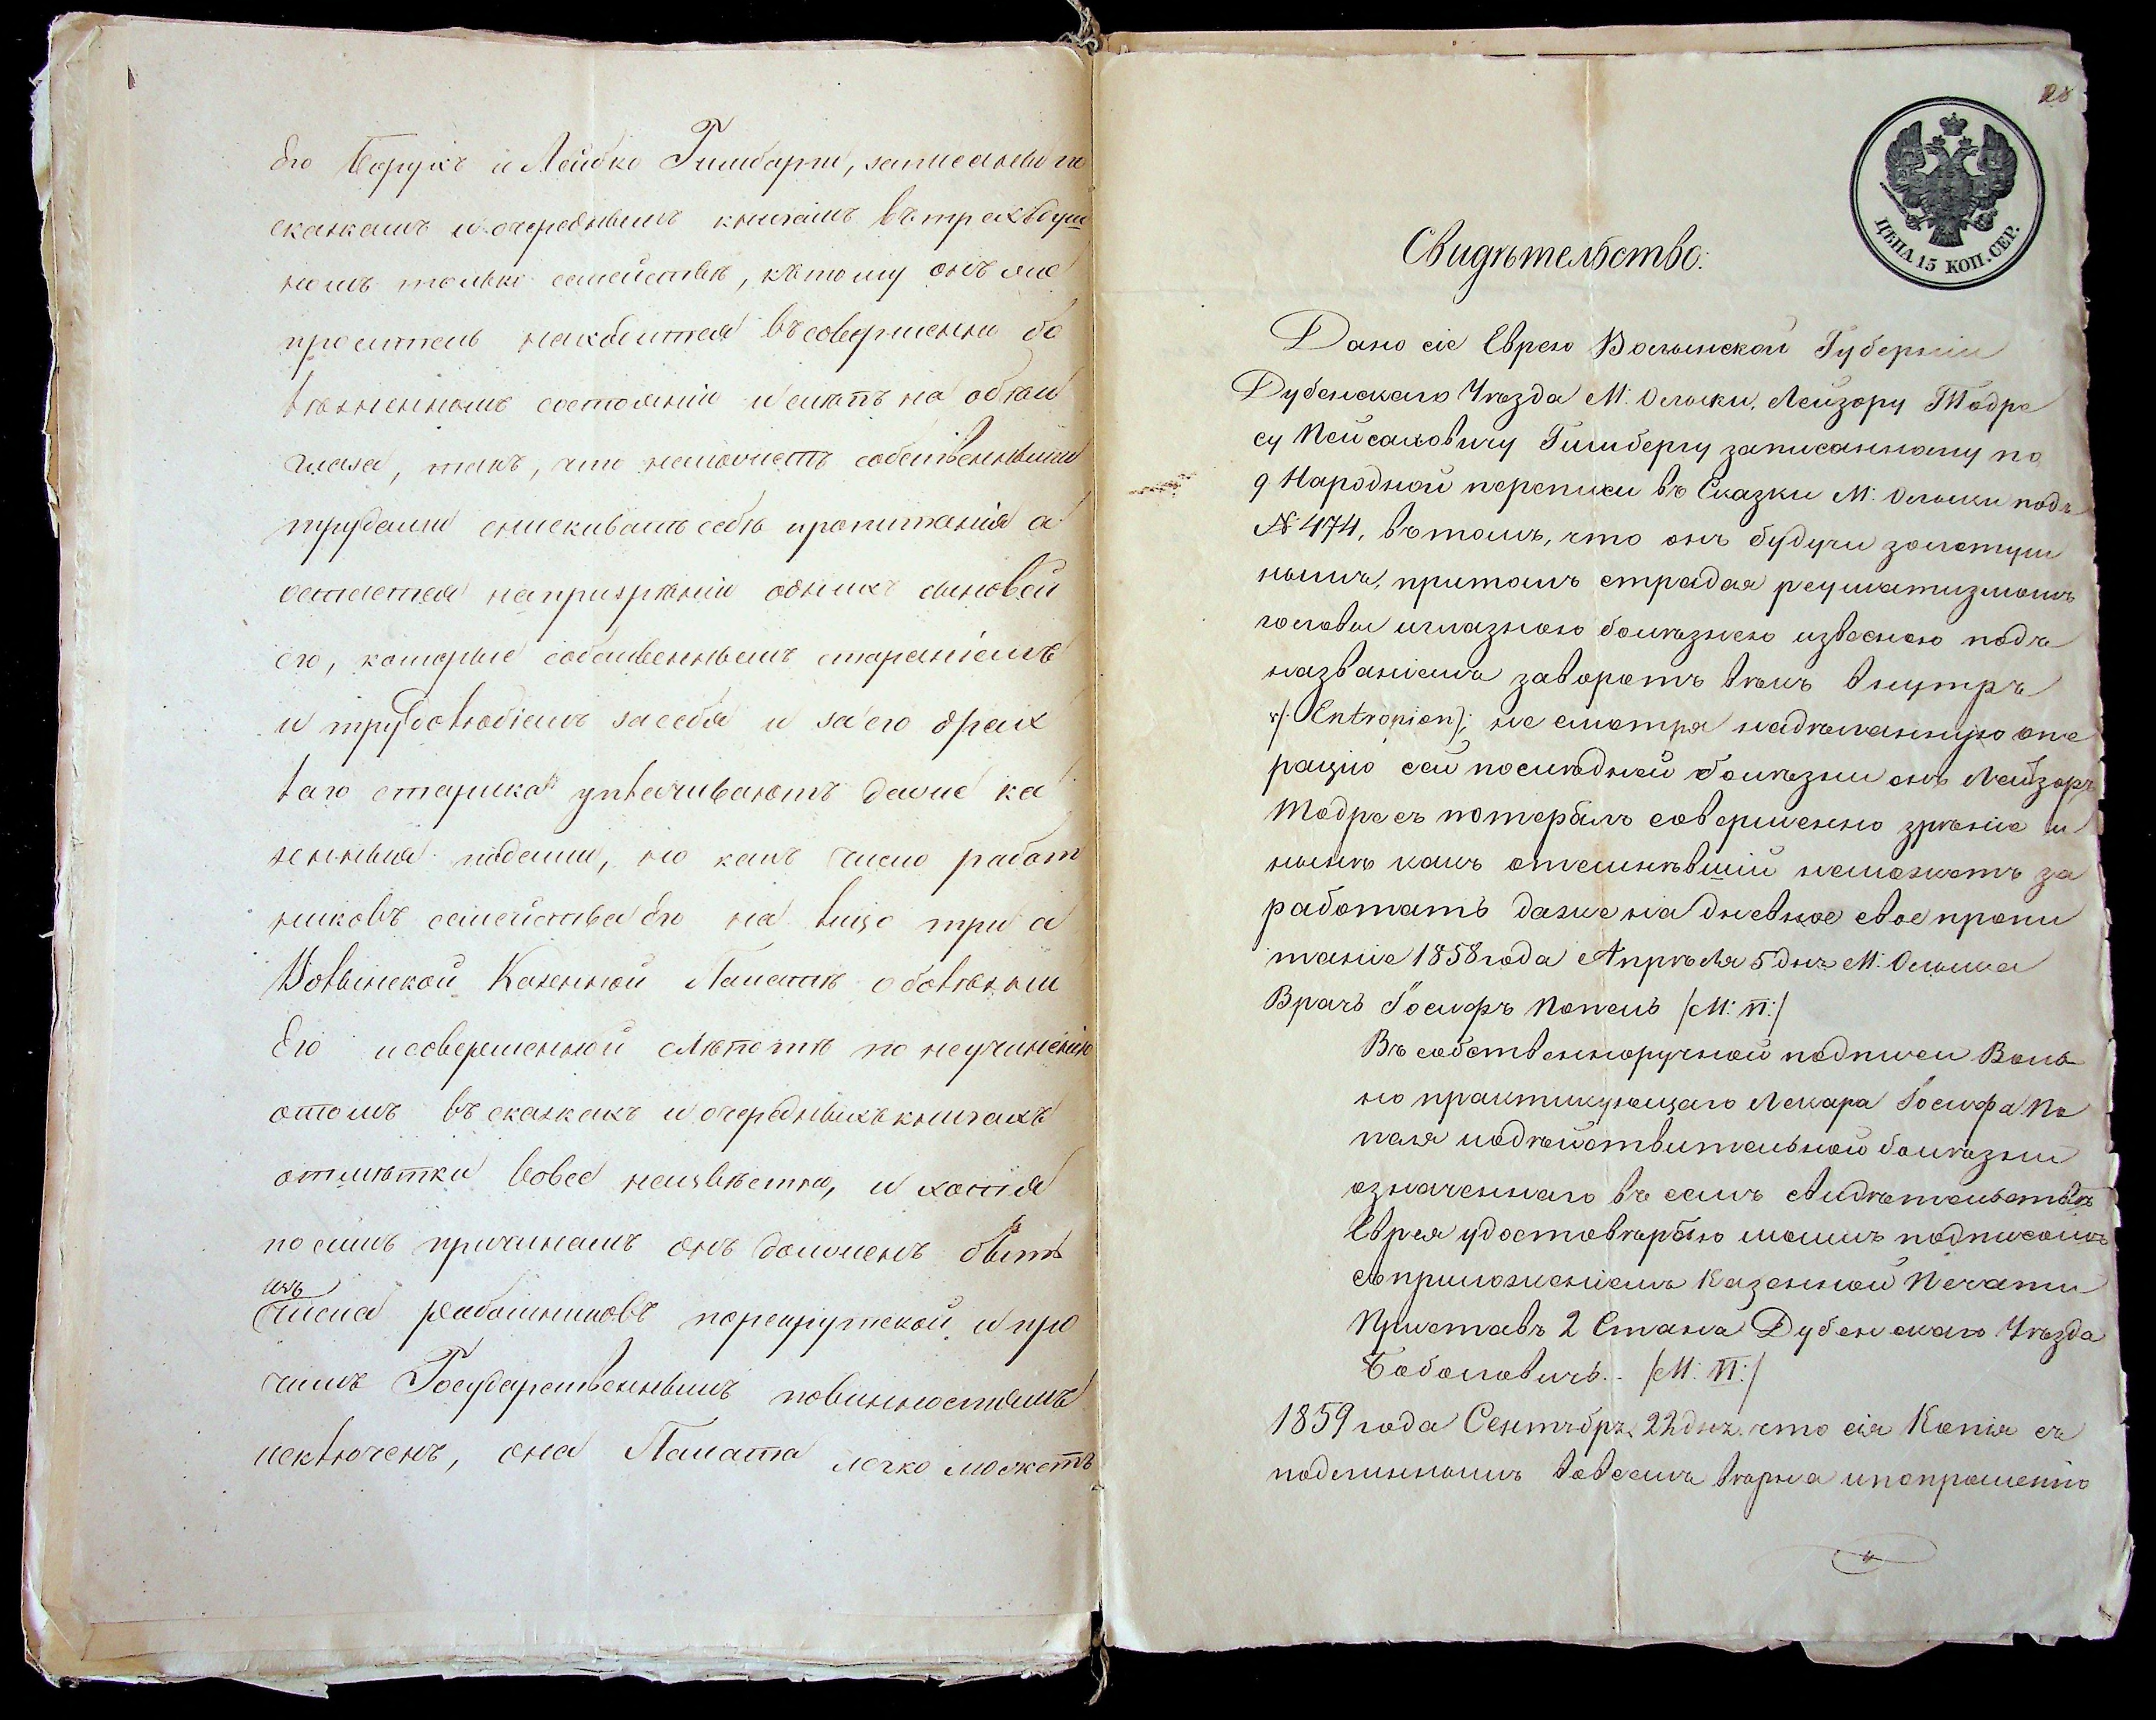 Его Борухъ и Лейбко Гимбарги, записаны по
сказкамъ и очереднымъ книгамъ въ трехъ душ
номъ только семействѣ, къ тому онъ же
проситель находится въ совершенно бо
лѣзненномъ состояніи и слѣпъ на обои
глаза, такъ, что неможетъ собственными
трудами снискивать себѣ пропитанія а
остается на призрѣніи одныхъ сыновей
его, которые собственнымъ стараніемъ
и трудолюбіемъ за себя и за его дрях
лаго старика уплачиваютъ даже ка
зенныя подати, но какъ число работ
никовъ семейства Его на лицо три а
Волынской Казенной Палатѣ о болѣзни
Его и совершенной слѣпотѣ по неучиненію
отомъ въ сказкахъ и очередныхъ книгахъ
отмѣтки вовсе неизвѣстно, и хотя
по симъ причинамъ онъ долженъ быть
изъ
числа работниковъ по рекрутской и про
чимъ Государственнымъ повинностямъ
исключенъ, она Палата легко можетъ
28
ЦѢНА 15 КОП. СЕР.
Свидѣтельство:
Дано сіе Еврею Волынской Губерніи
Дубенскаго Уѣзда М. Олыки, Лейзору Тодре
су Пейсаховичу Гимбергу записанному по
9 Народной переписи въ Сказки М. Олыки подъ
№ 474, въ томъ, что онъ будучи золотуш
нымъ, притомъ страдая реуматизмомъ
головы и глазною болѣзнею извесною подъ
названіемъ заворотъ вѣкъ внутръ
/: Entropion :/ не смотря на дѣланную опе
рацію сей послѣдней болѣзни онъ Лейзоръ
Тодресъ потерялъ совершенно зрѣніе и
нынѣ какъ отемнѣвшій неможетъ за
работать даже на дневное свое пропи
таніе 1858 года Апрѣля 5 дня М. Олыка
Врачъ Іосифъ Попель /М: П:/
Въ собственноручной подписи Воль
но практикующаго Лекаря Іосифа По
пеля и о дѣйствительной болѣзни
означеннаго въ семъ свидѣтельствѣ
Еврея удостовѣряю моимъ подписомъ
съ приложеніемъ Казенной Печати
Приставъ 2 Стана Дубенскаго Уѣзда
/М: П:/
1859 года Сентября 22 дня что сія Копія съ
подлиннымъ во всемъ вѣрна и по прошенію